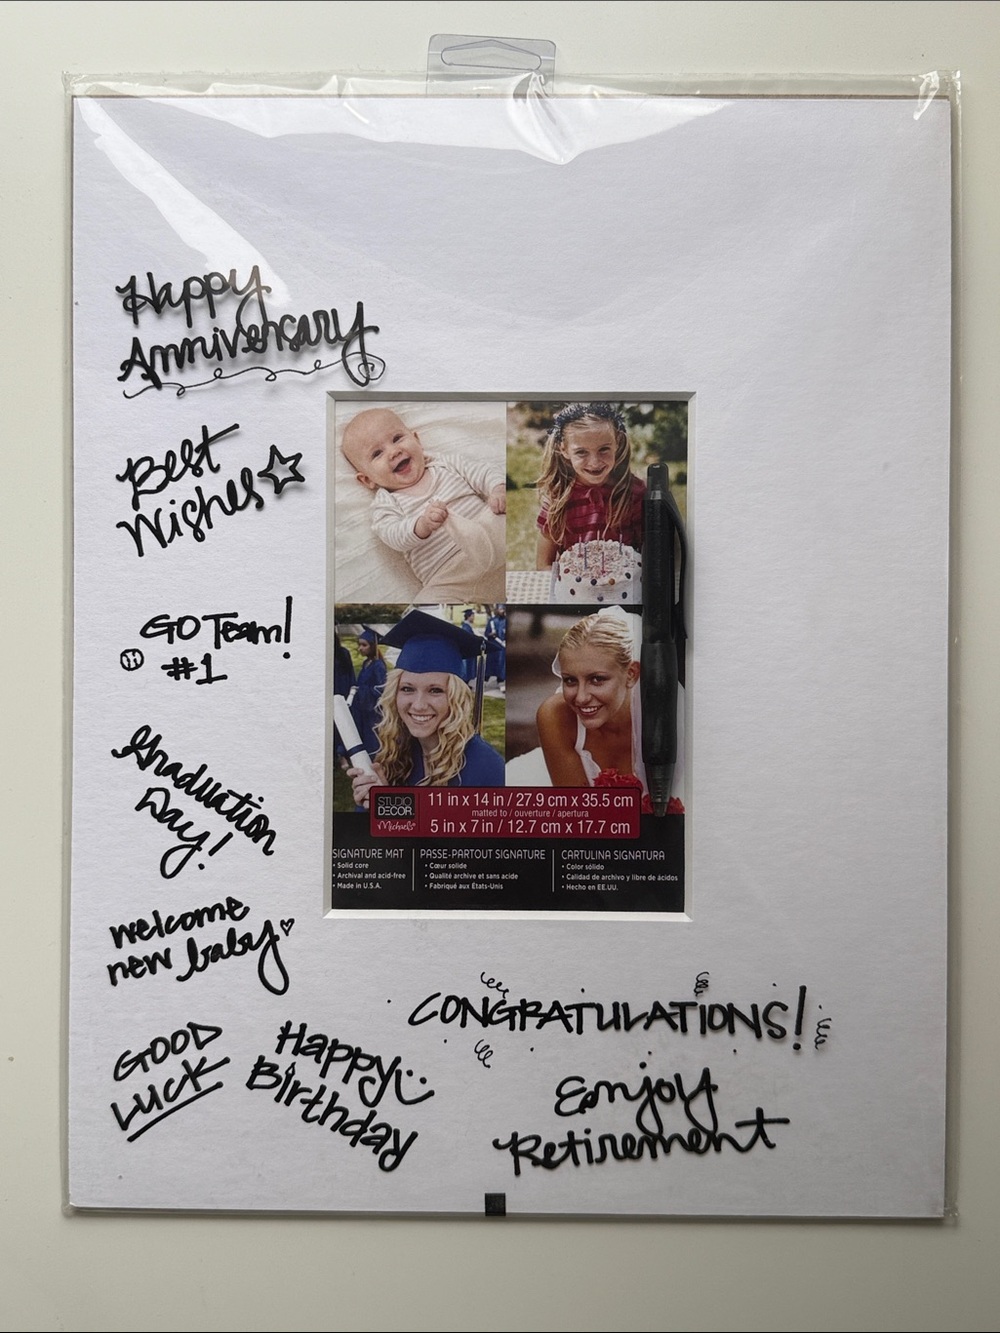 Happy
Anniversary
Best
Wishes
GO Team!
#1
Graduation
Day!
welcome
new baby
GOOD
LUCK
Happy
Birthday
CONGRATULATIONS!
Enjoy
Retirement
STUDIO
DECOR
Michaels
11 in x 14 in / 27.9 cm x 35.5 cm
matted to / ouverture / apertura
5 in x 7 in / 12.7 cm x 17.7 cm
SIGNATURE MAT
• Solid core
• Archival and acid-free
• Made in U.S.A.
PASSE-PARTOUT SIGNATURE
• Cœur solide
• Qualité archive et sans acide
• Fabriqué aux États-Unis
CARTULINA SIGNATURA
• Color sólido
• Calidad de archivo y libre de ácidos
• Hecho en EE.UU.